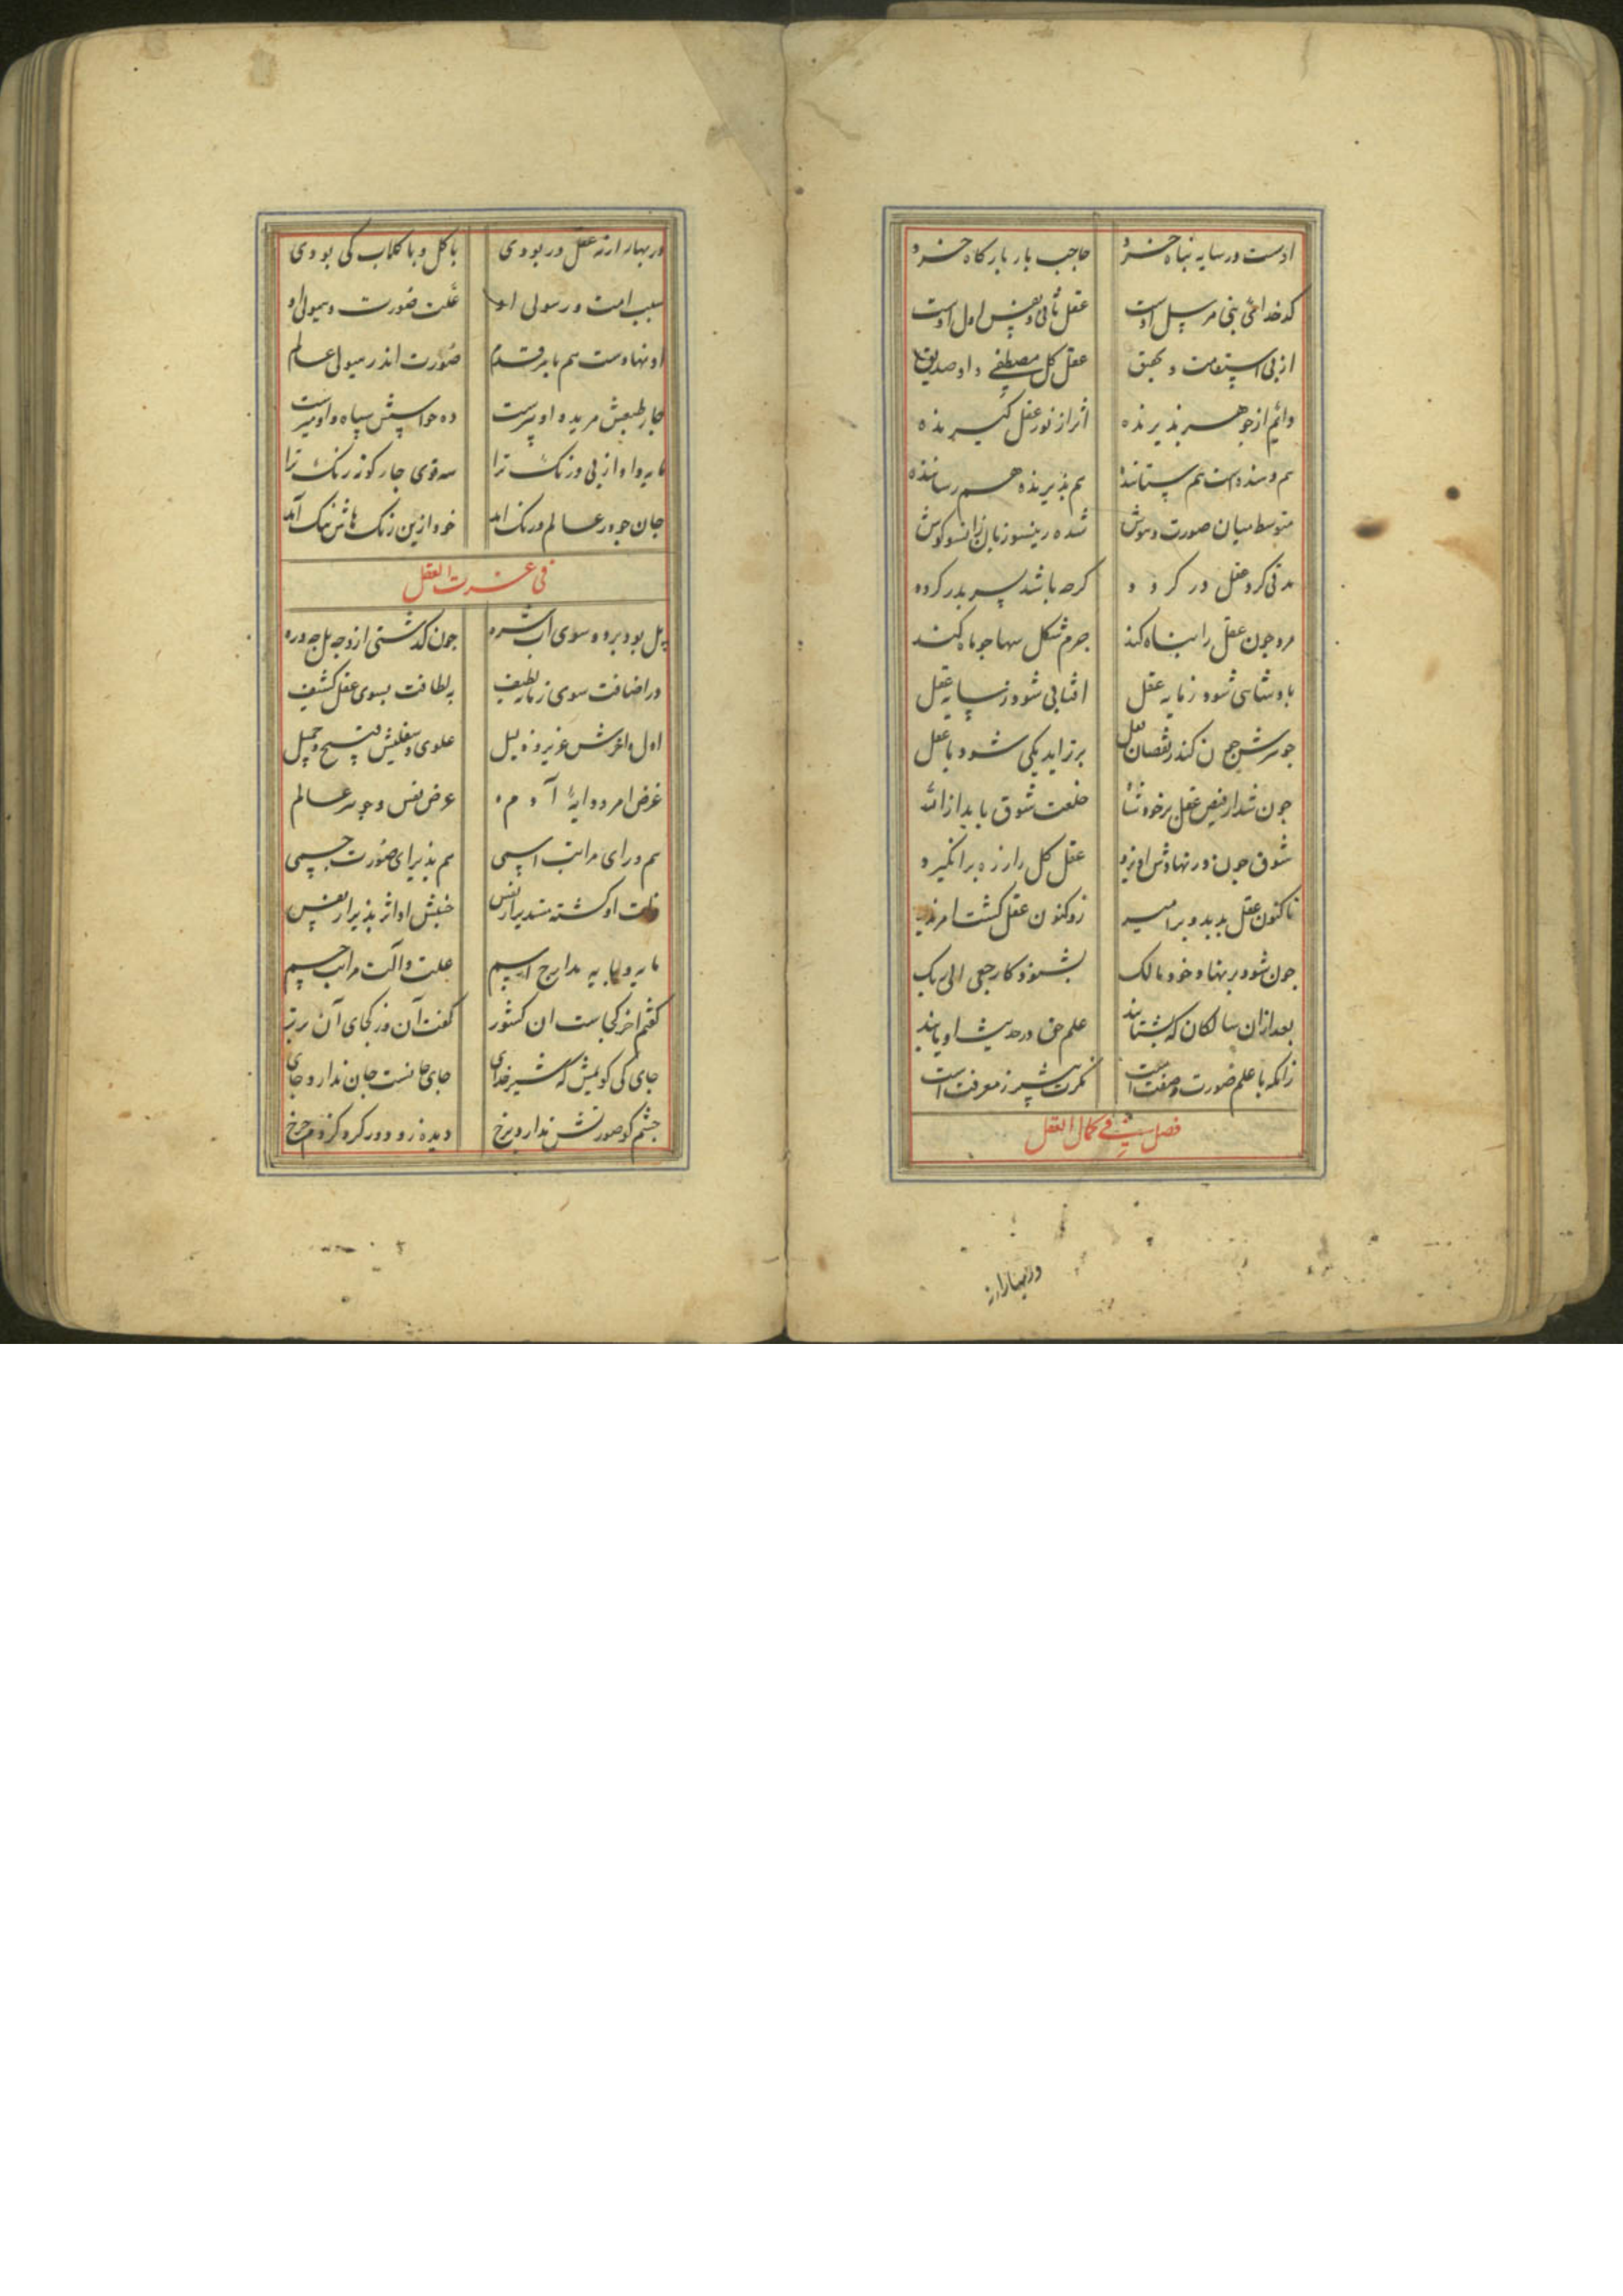 اوست در سایه پناه خرد حاجب بار بارکاه خرد
کدخدای بنی مرسل اوست عقل ثانی و نفس اول اوست
از پی استقامت و عقل کل مصطفی و او صدیق
دائم از جوهر پذیرنده اثر از نور عقل کیرنده
هم دهنده است هم ستاننده هم پذیرنده هم رساننده
متوسط میان صورت و هوش شده زینسو زبان زانسو کوش
مدتی کرد عقل در کرده کرچه باشد پسر پدر کرده
مرد چون عقل را پناه کند جرم شکل سها چو ماه کند
پادشاهی شود ز مایه عقل افتابی شود ز سایه عقل
جوهرش چون کند ز نقصان نقل برتر اید یکی شود با عقل
چون شد از فیض عقل برخود شاه خلعت شوق یابد از الله
شوق چون در نهادش اویزد عقل کل را ز ره برانکیزد
تاکنون عقل بد بدو بر امیر زو کنون عقل کشت امر پذیر
چون شود بر نهاد خود مالک بشنود کارجعی الی ربک
بعد ازان سالکان که بشتابند علم حق در حدیث او یابند
زانکه با علم صورت و صفت است معرفت است
فصل فی کمال العقل
در بهار ار نه
در بهار ار نه عقل در بودی با کل و با کلاب کی بودی
سبب امت و رسولی او علت صورت و هیولی او
او نهادست هم بامر قدم صورت اندر هیولی عالم
چار طبعش مرید و او پیرست ده حواسش سپاه و او میرست
مایه داد او از پی درنک ترا سه قوی چار کونه رنک ترا
جان چو در عالم درنک امد خود ازین رنک هاش ننک آمد
فی عزت العقل
پل بود بر ره سوی آب شره چون کذشتی ازو چه پل چه دره
در اضافت سوی زمانه لطیف به لطافت بسوی عقل کثیف
اول و اخرش عزیز و ذلیل علوی و سفلیش قبیح و جمیل
غرض امر و دایۀ آدم عرض نفس و جوهر عالم
هم ورای مراتب اسمی هم پذیرای صورت جسمی
ذات او کشته مستدیر از نفس جنبش او اثر پذیر از نفس
مایه و پایه مدارج اسم علت و آلت مراتب جسم
کفتم اخر کجاست ان کشور کفت آن وز کجای آن برتر
جای کی کویمش که شیر خدای جای جانست جان ندارد جای
چشم کو صورتش ندارد برخ دیده زو دور کرد کژدم چرخ